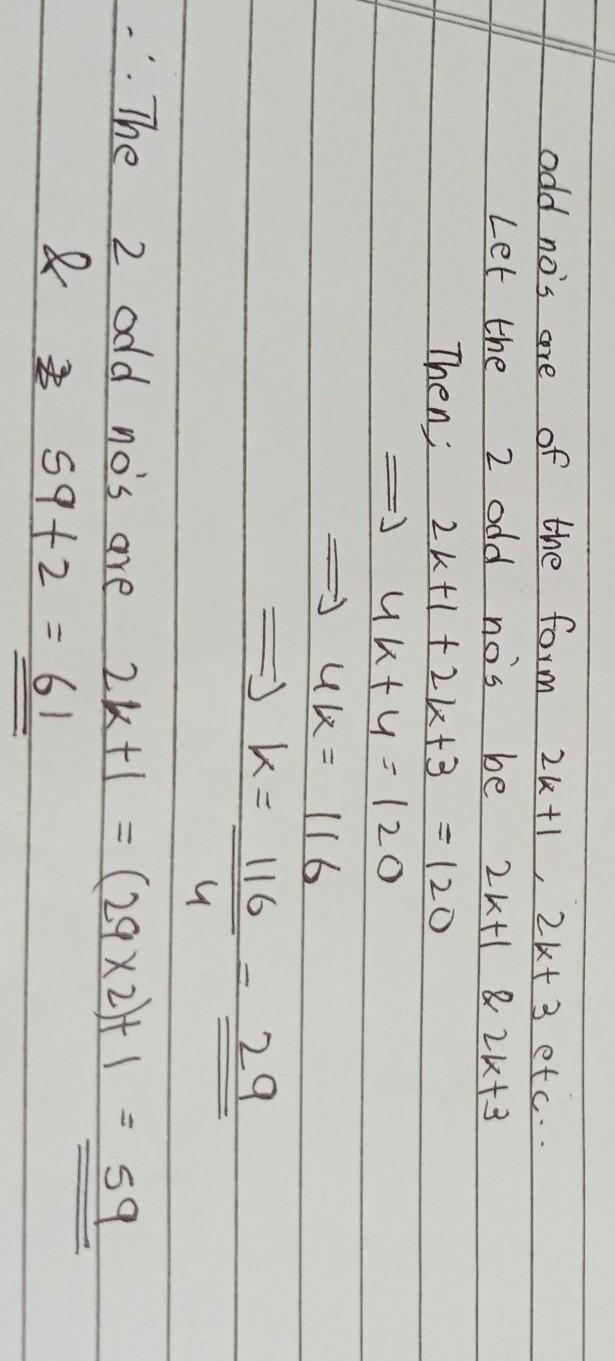 odd no's are of the form 2k+1, 2k+3 etc...
Let the 2 odd no's be 2k+1 & 2k+3
Then; 2k+1+2k+3 = 120
⟹ 4k+4 = 120
⟹ 4k = 116
⟹ k = 116 = 29
4
∴ The 2 odd no's are 2k+1 = (29×2)+1 = 59
& 59+2 = 61